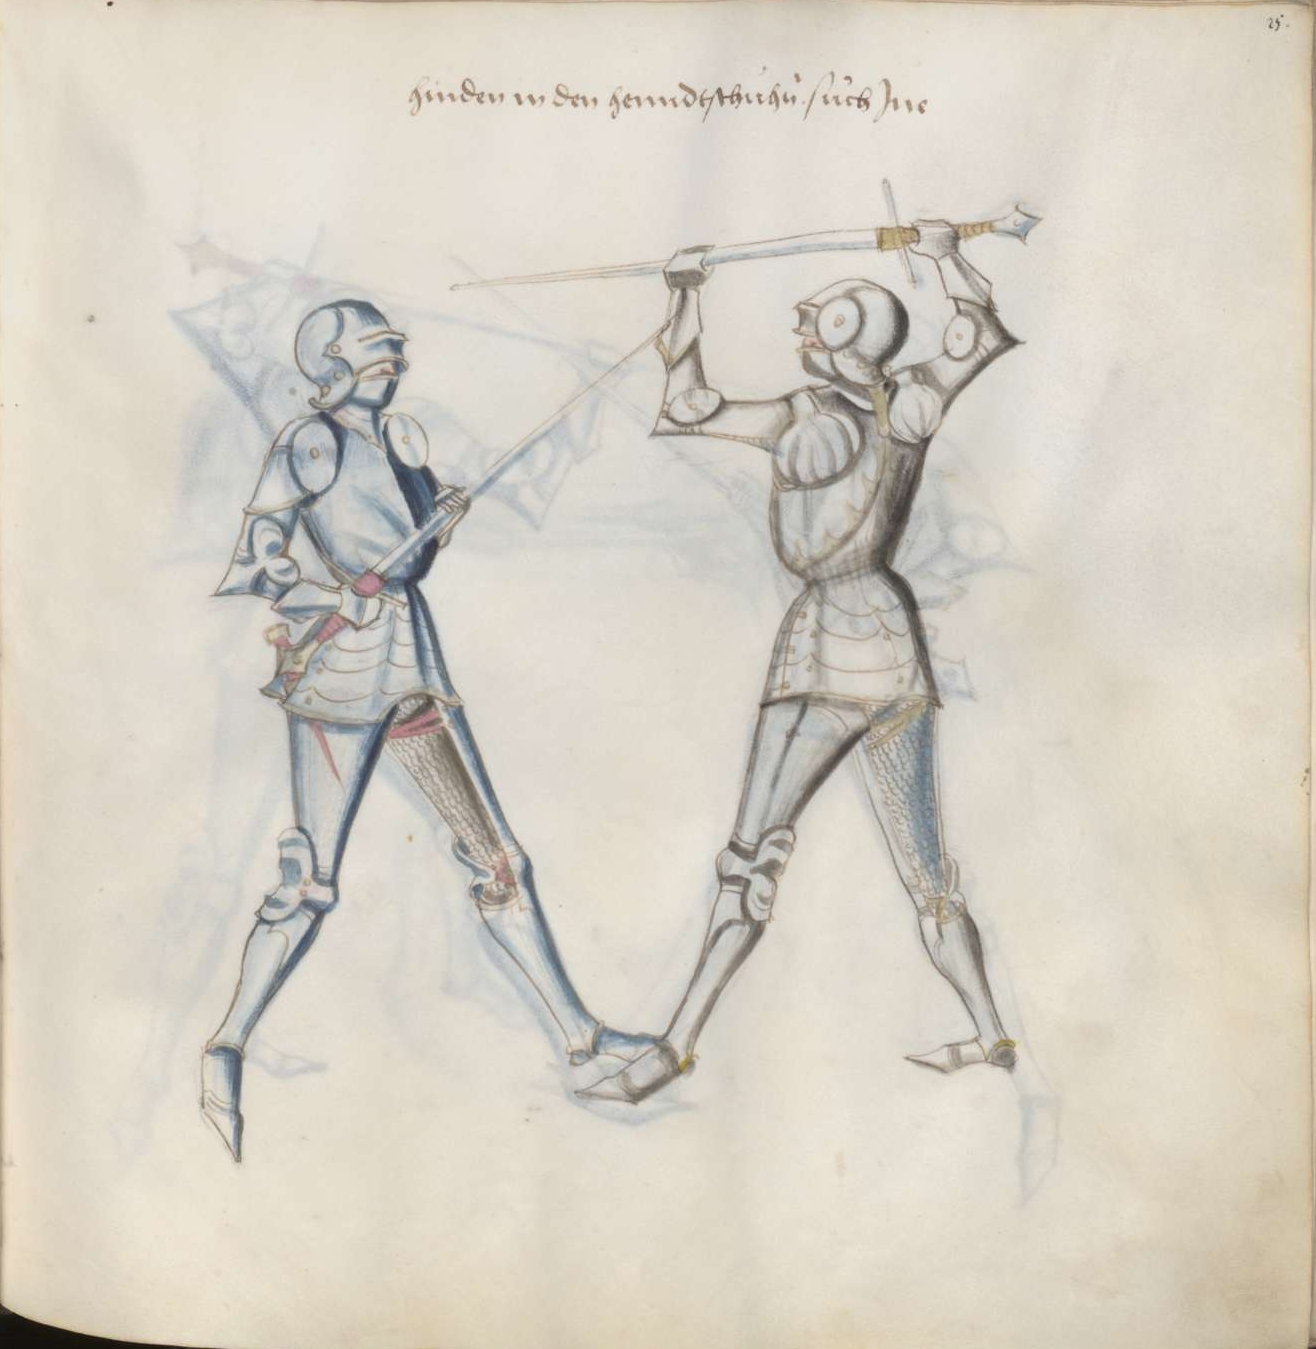 25.
hinden in den henndtschuhn̄. such Jne